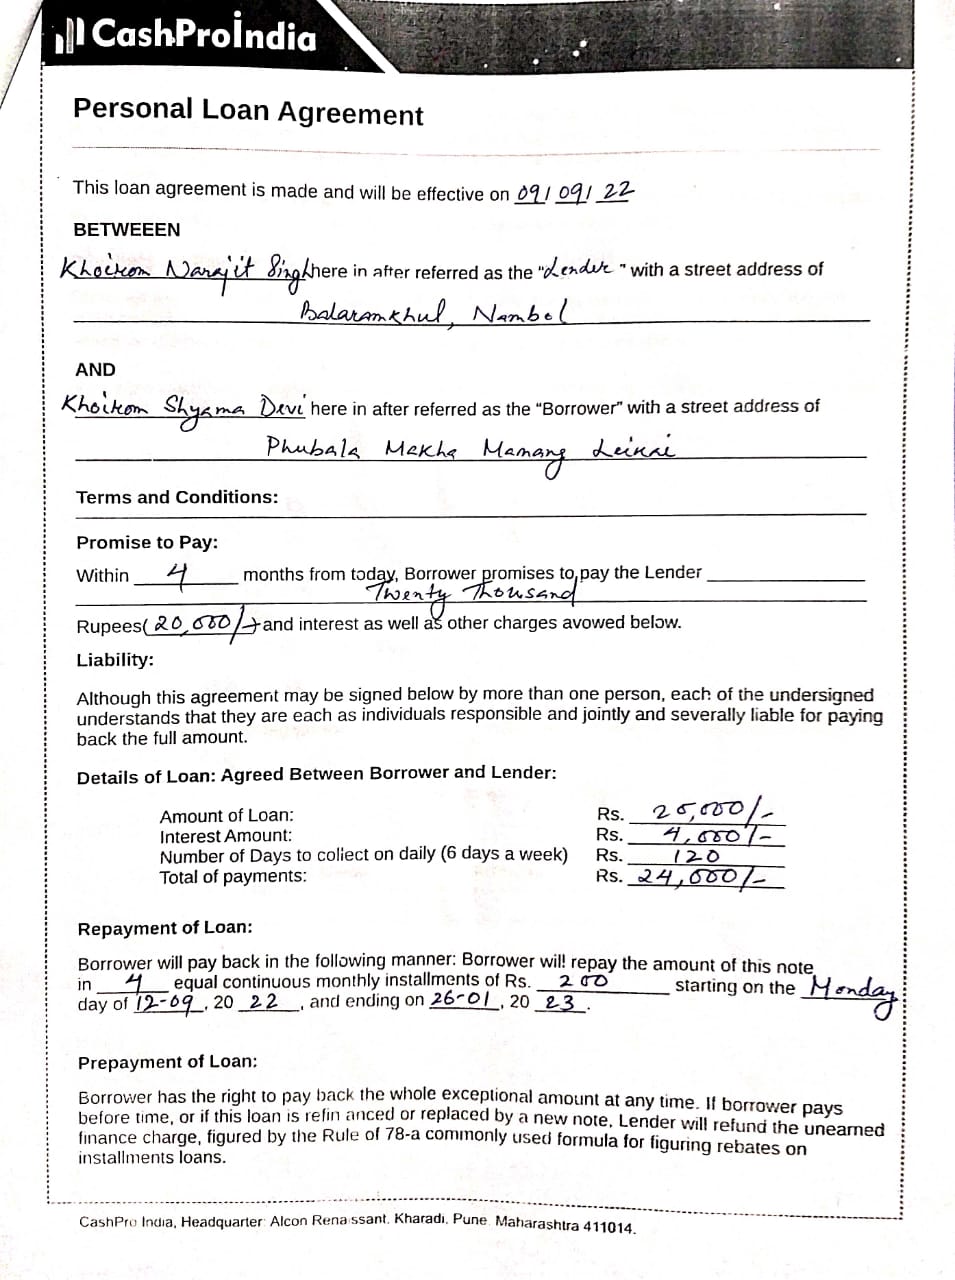 CashProIndia
Personal Loan Agreement
This loan agreement is made and will be effective on 09/ 09/ 22
BETWEEEN
Khoirom Narajit Singh here in after referred as the "Lender" with a street address of
Balaramkhul, Nambol
AND
Khoirom Shyama Devi here in after referred as the “Borrower” with a street address of
Phubala Makha Mamang Leikai
Terms and Conditions:
Promise to Pay:
Within 4 months from today, Borrower promises to pay the Lender
Twenty Thousand
Rupees( 20,000/- and interest as well as other charges avowed below.
Liability:
Although this agreement may be signed below by more than one person, each of the undersigned
understands that they are each as individuals responsible and jointly and severally liable for paying
back the full amount.
Details of Loan: Agreed Between Borrower and Lender:
Amount of Loan: Rs. 20,000/-
Interest Amount: Rs. 4,000/-
Number of Days to collect on daily (6 days a week) Rs. 120
Total of payments: Rs. 24,000/-
Repayment of Loan:
Borrower will pay back in the following manner: Borrower will repay the amount of this note
in 4 equal continuous monthly installments of Rs. 200 starting on the Monday
day of 12-09, 20 22, and ending on 26-01, 20 23.
Prepayment of Loan:
Borrower has the right to pay back the whole exceptional amount at any time. If borrower pays
before time, or if this loan is refin anced or replaced by a new note, Lender will refund the unearned
finance charge, figured by the Rule of 78-a commonly used formula for figuring rebates on
installments loans.
CashPro India, Headquarter: Alcon Renaissant, Kharadi, Pune, Maharashtra 411014.